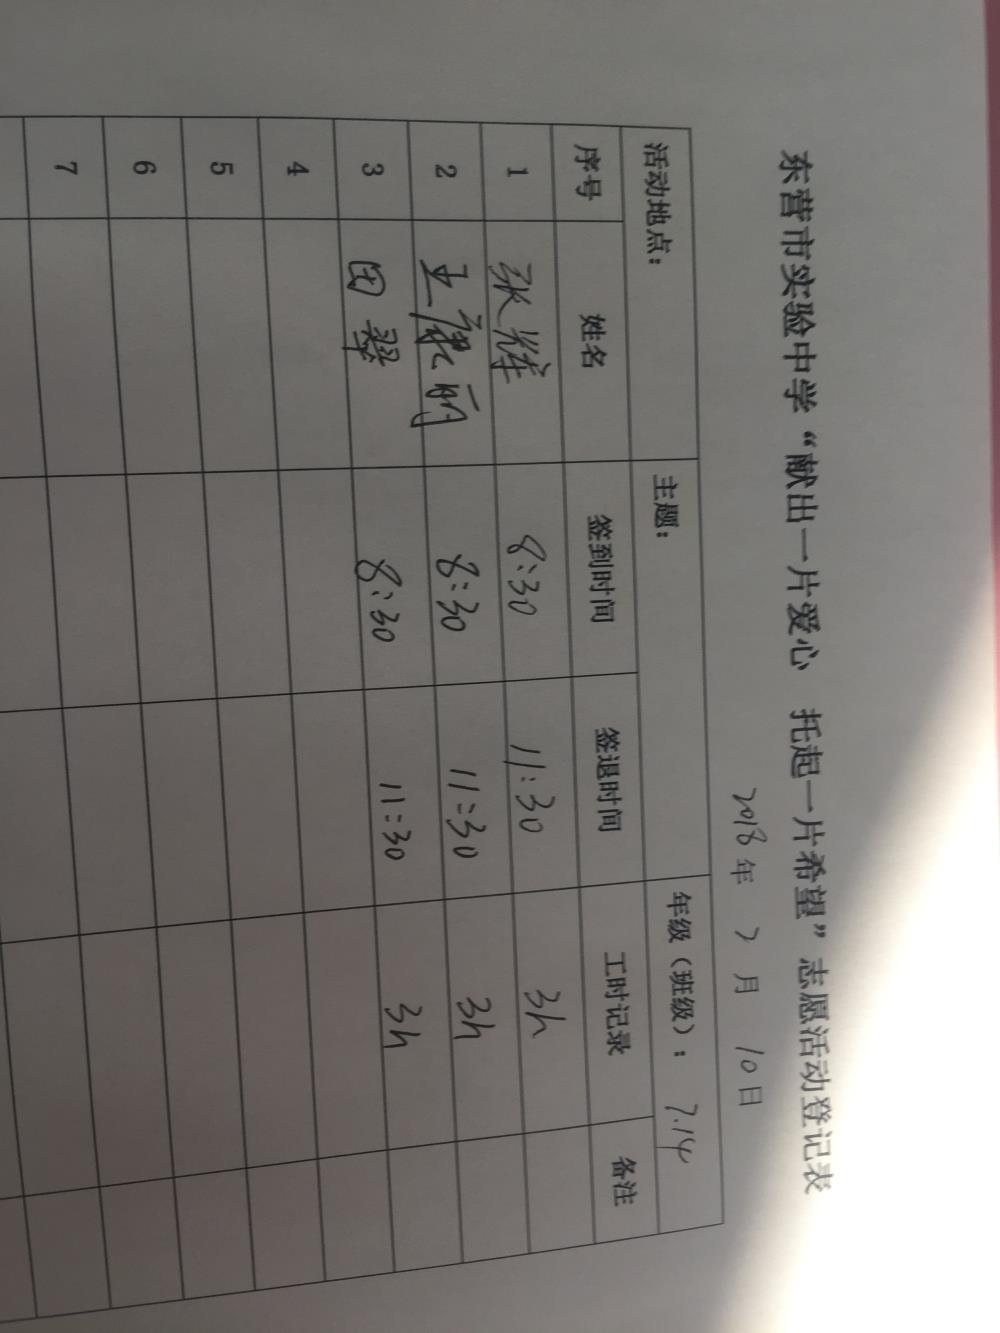 东营市实验中学“献出一片爱心 托起一片希望”志愿活动登记表
2018年 2月 10日
活动地点： 主题： 年级（班级）： 7.14
序号 姓名 签到时间 签退时间 工时记录 备注
1 张辉 8:30 11:30 3h
2 王康丽 8:30 11:30 3h
3 田翠 8:30 11:30 3h
4
5
6
7